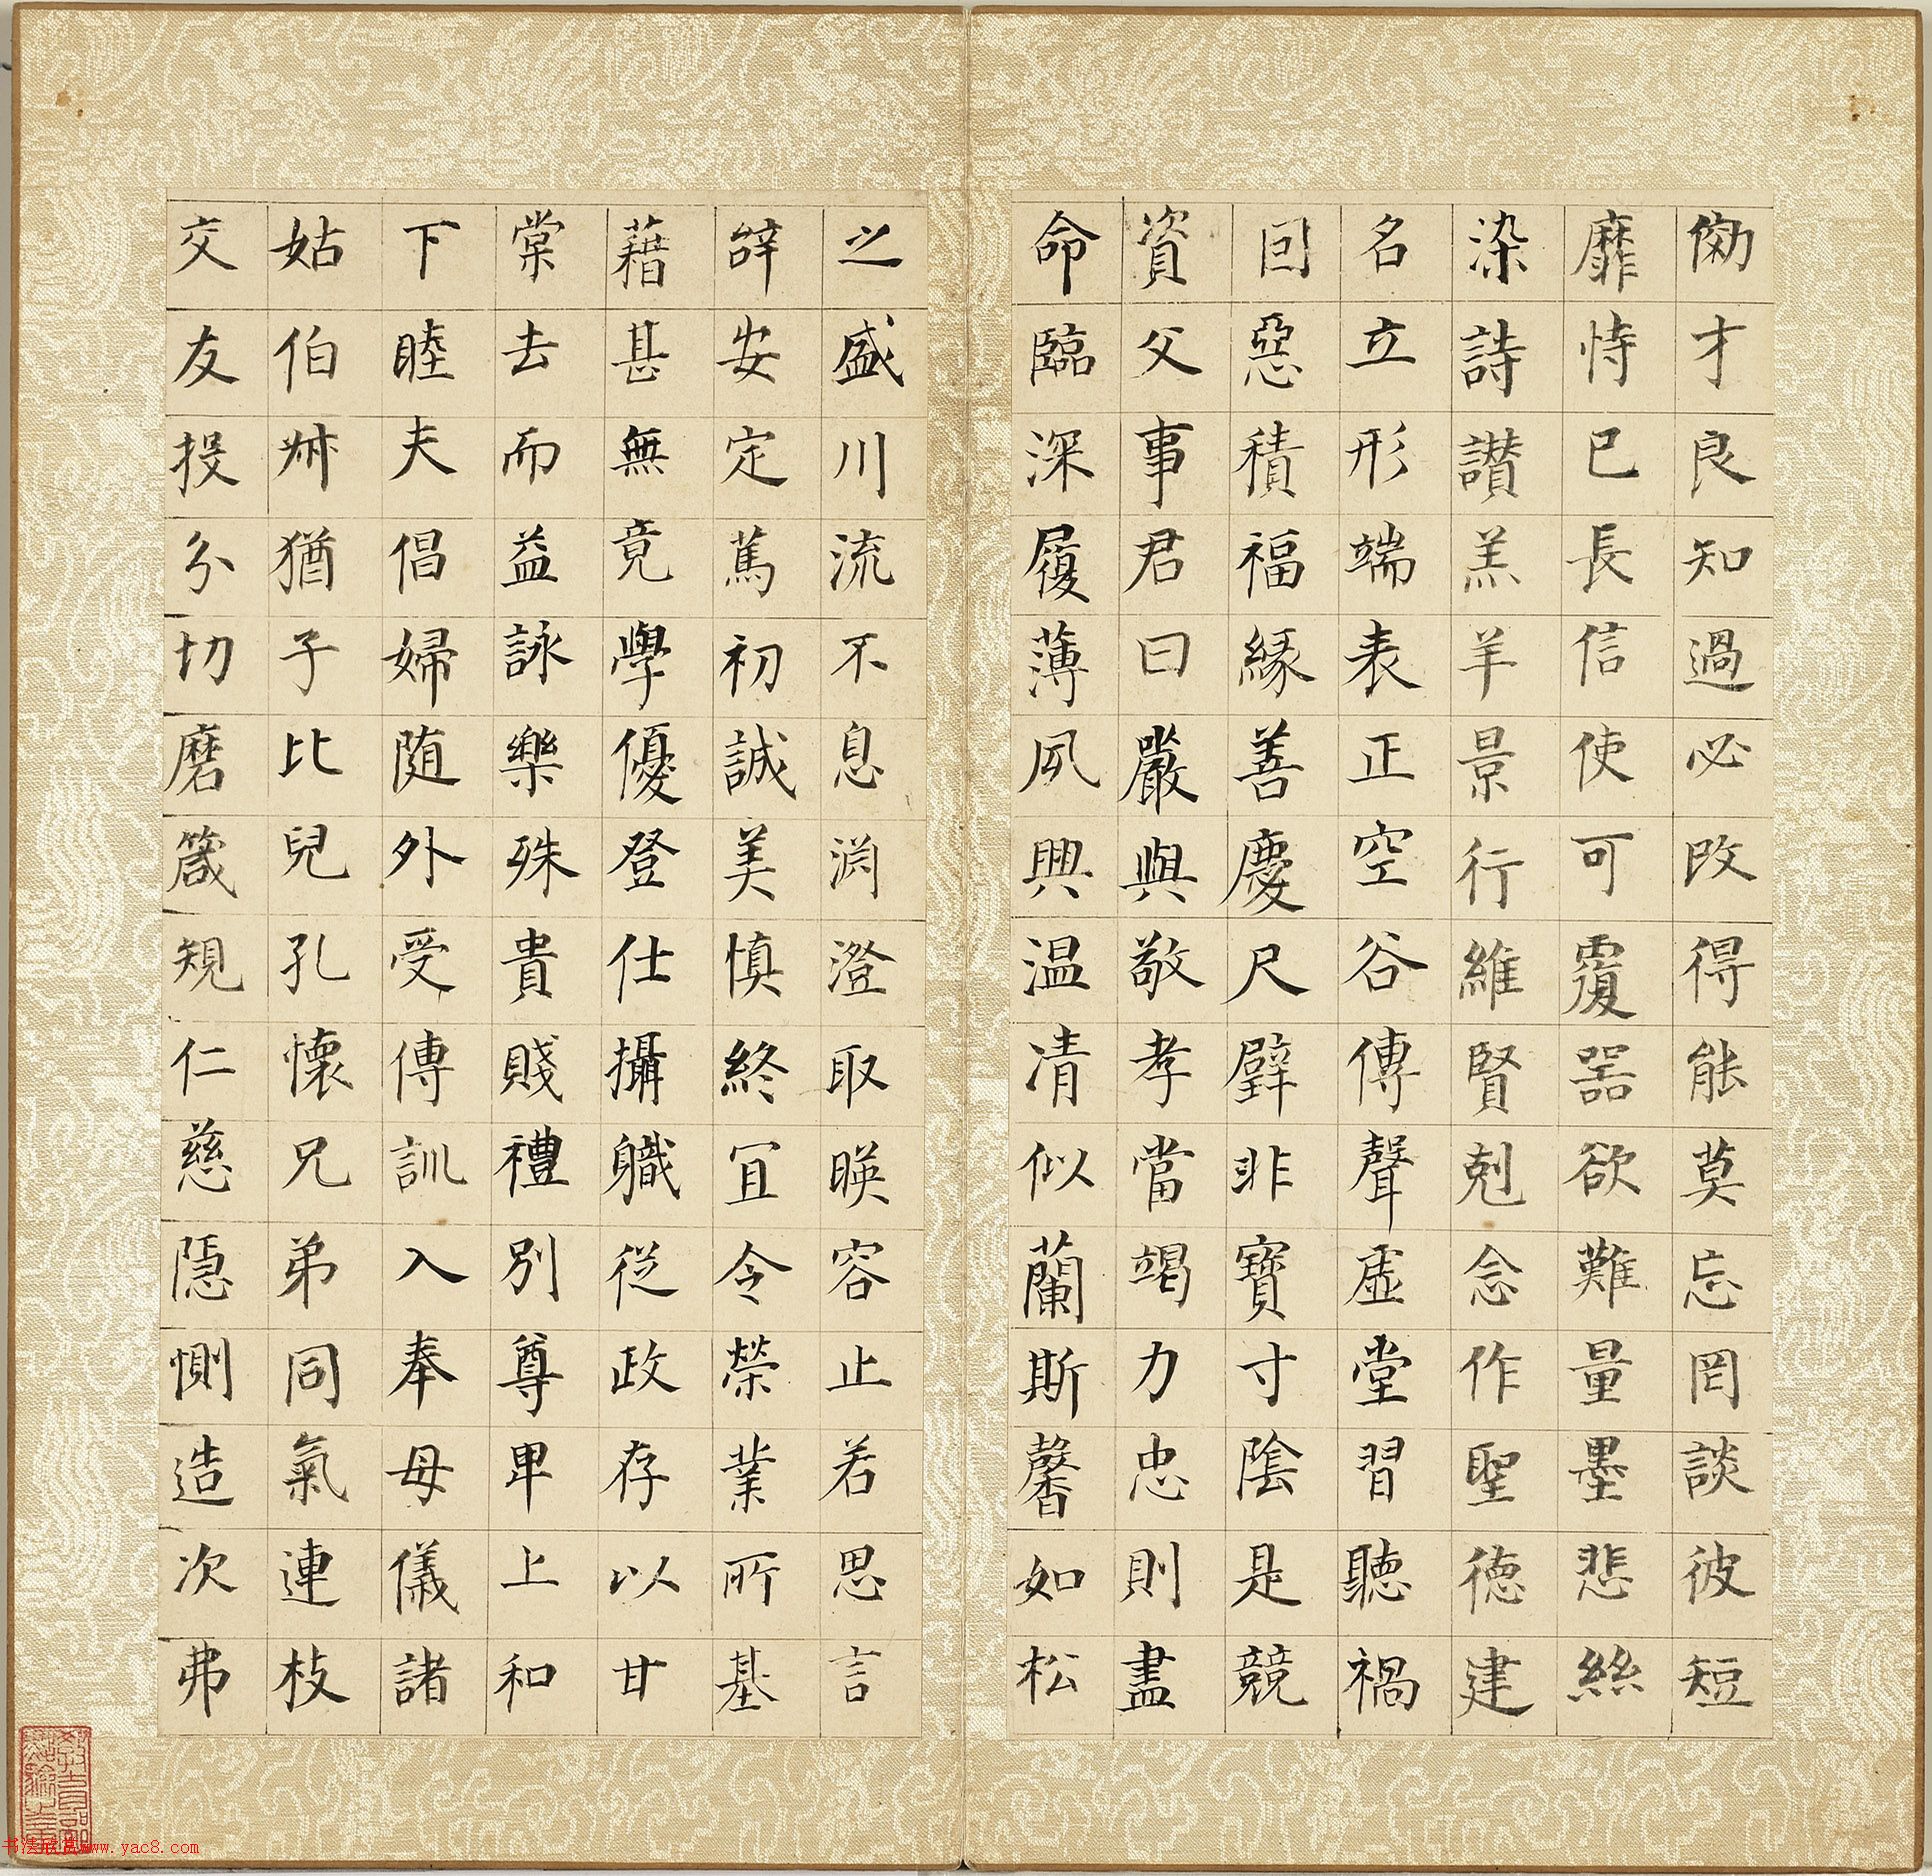 傚才良知過必改得能莫忘罔談彼短
靡恃已長信使可覆器欲難量墨悲絲
染詩讃羔羊景行維賢剋念作聖德建
名立形端表正空谷傳聲虛堂習聽禍
因惡積福緣善慶尺璧非寶寸陰是競
資父事君曰嚴與敬孝當竭力忠則盡
命臨深履薄夙興温凊似蘭斯馨如松
之盛川流不息淵澄取暎容止若思言
辭安定篤初誠美慎終宜令榮業所基
藉甚無竟學優登仕攝職從政存以甘
棠去而益詠樂殊貴賤禮別尊卑上和
下睦夫倡婦随外受傅訓入奉母儀諸
姑伯叔猶子比兒孔懷兄弟同氣連枝
交友投分切磨箴規仁慈隱惻造次弗
书法欣赏www.yac8.com